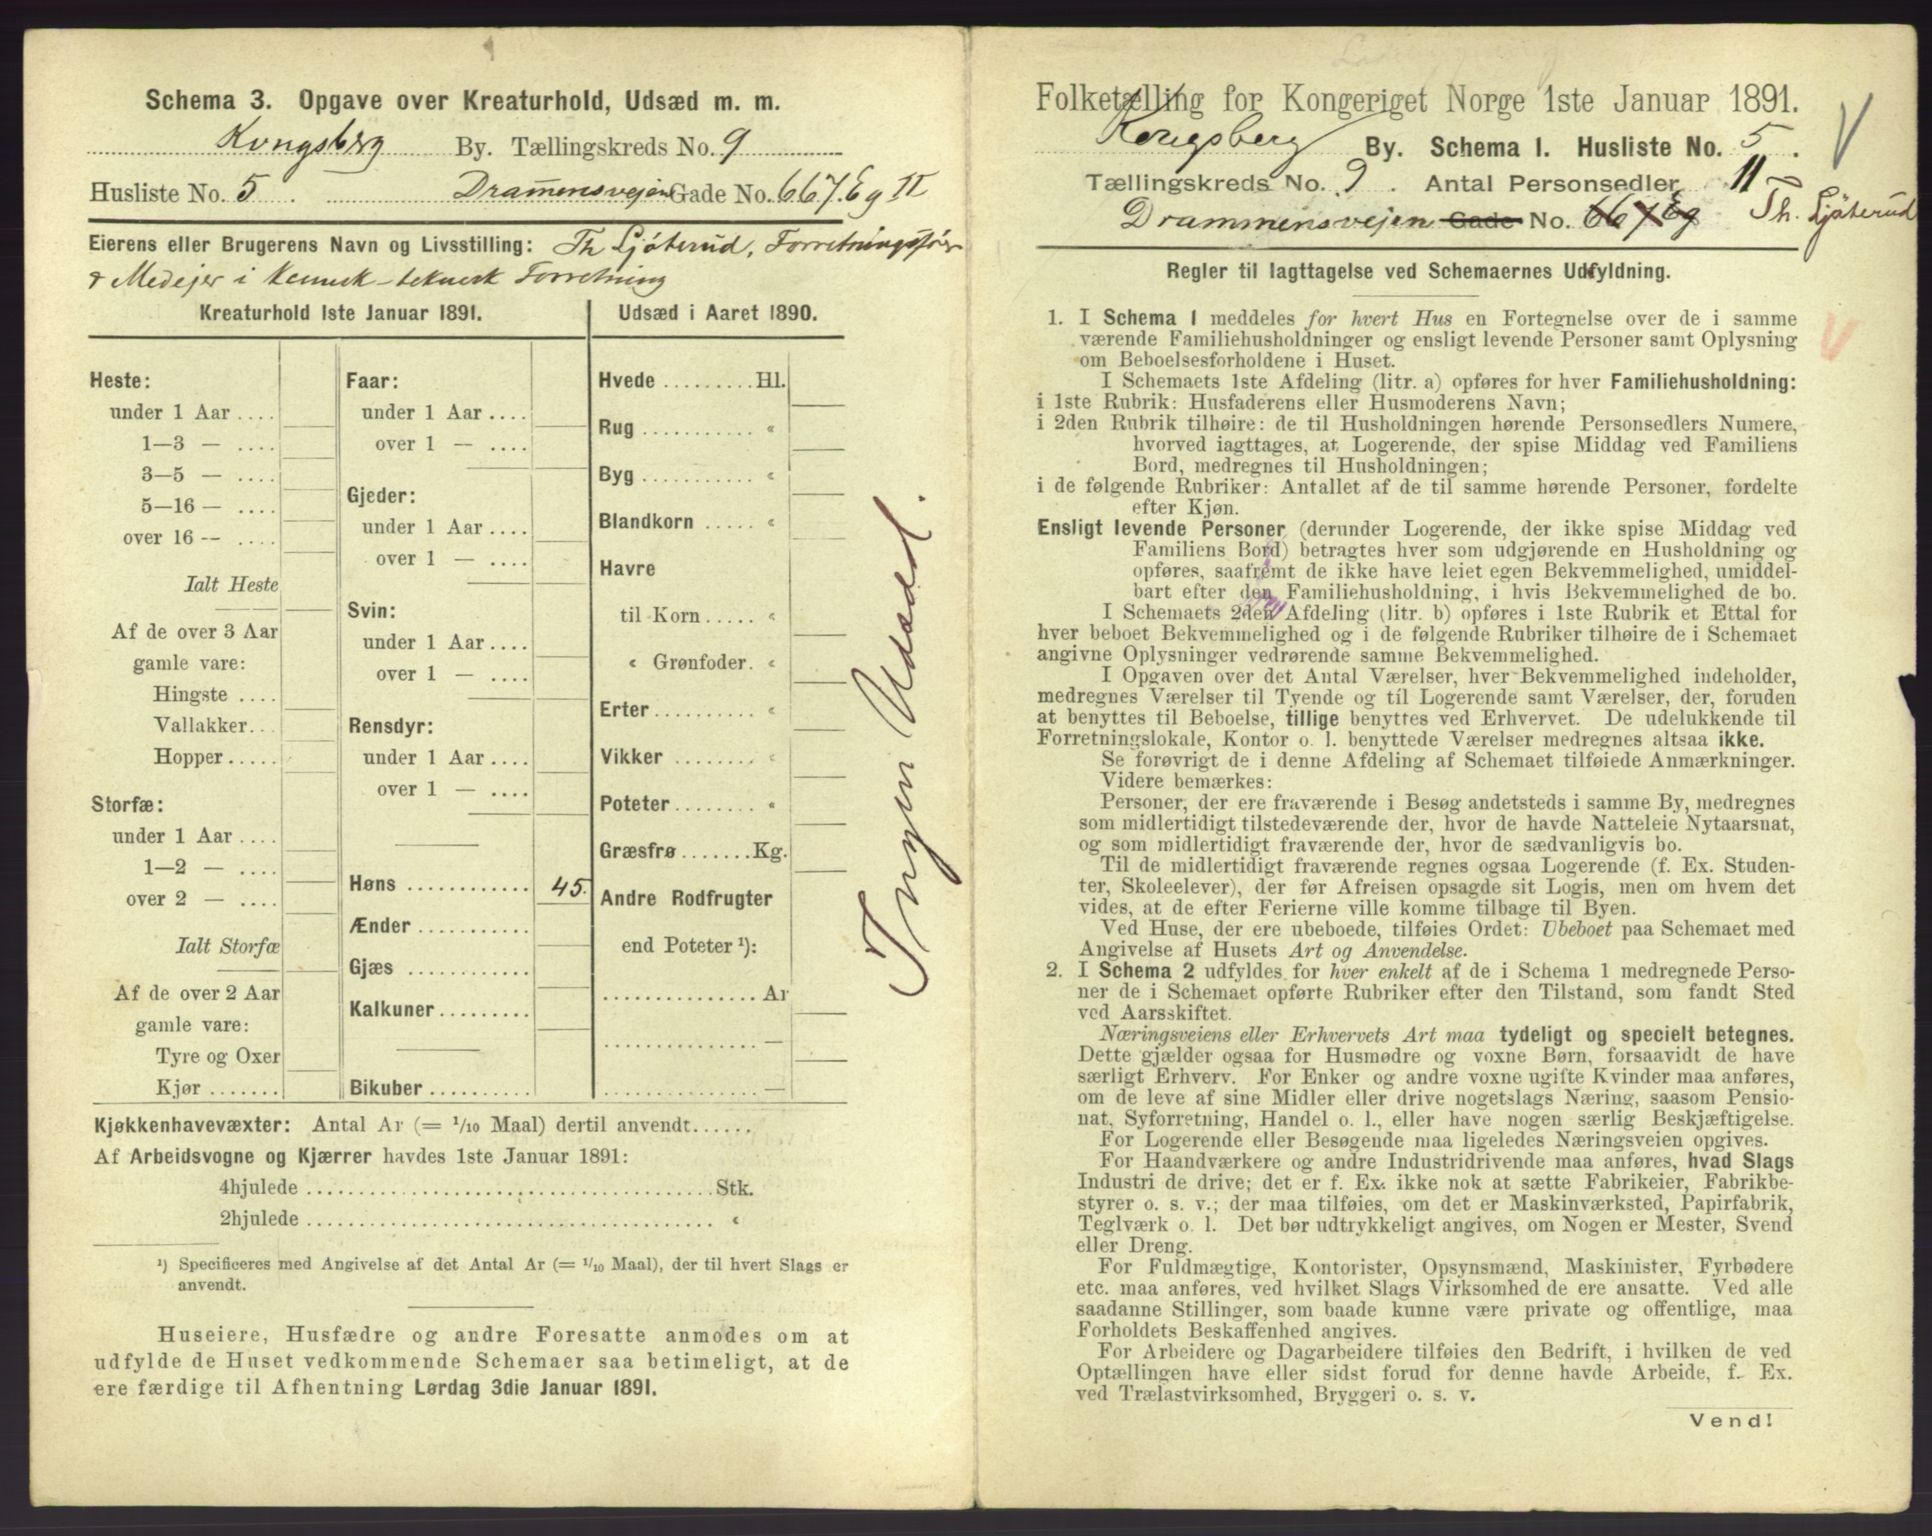 Schema 3. Opgave over Kreaturhold, Udsæd m. m.
Kongsberg By. Tællingskreds No. 9
Husliste No. 5. Drammensvejen Gade No. 667. Eg II
Eierens eller Brugerens Navn og Livsstilling: Th Ljøterud, Forretningsfører
& Medejer i kemisk-teknisk Forretning
Kreaturhold 1ste Januar 1891.
Heste:
under 1 Aar ....
1—3 — ....
3—5 — ....
5—16 — ....
over 16 — ....
Ialt Heste
Af de over 3 Aar
gamle vare:
Hingste ....
Vallakker...
Hopper.....
Storfæ:
under 1 Aar ....
1—2 — ....
over 2 — ....
Ialt Storfæ
Af de over 2 Aar
gamle vare:
Tyre og Oxer
Kjør .......
Faar:
under 1 Aar ....
over 1 — ....
Gjeder:
under 1 Aar ....
over 1 — ....
Svin:
under 1 Aar ....
over 1 — ....
Rensdyr:
under 1 Aar ....
over 1 — ....
Høns ............ 45.
Ænder ...........
Gjæs ............
Kalkuner.........
Bikuber ..........
Udsæd i Aaret 1890.
Hvede .........Hl.
Rug ........... «
Byg ........... «
Blandkorn ..... «
Havre
til Korn..... «
« Grønfoder. «
Erter.......... «
Vikker ........ «
Poteter........ «
Græsfrø.......Kg.
Andre Rodfrugter
end Poteter ¹):
...............Ar
............... —
............... —
Ingen Udsæd.
Kjøkkenhavevæxter: Antal Ar (= 1/10 Maal) dertil anvendt......
Af Arbeidsvogne og Kjærrer havdes 1ste Januar 1891:
4hjulede ......................................Stk.
2hjulede ...................................... «
¹) Specificeres med Angivelse af det Antal Ar (= 1/10 Maal), der til hvert Slags er
anvendt.
Huseiere, Husfædre og andre Foresatte anmodes om at
udfylde de Huset vedkommende Schemaer saa betimeligt, at de
ere færdige til Afhentning Lørdag 3die Januar 1891.
Folketælling for Kongeriget Norge 1ste Januar 1891.
Kongsberg By. Schema 1. Husliste No. 5.
Tællingskreds No. 9. Antal Personsedler 11
Drammensvejen Gade No. 667 Eg Th. Ljøterud
Regler til Iagttagelse ved Schemaernes Udfyldning.
1. I Schema 1 meddeles for hvert Hus en Fortegnelse over de i samme
værende Familiehusholdninger og ensligt levende Personer samt Oplysning
om Beboelsesforholdene i Huset.
I Schemaets 1ste Afdeling (litr. a) opføres for hver Familiehusholdning:
i 1ste Rubrik: Husfaderens eller Husmoderens Navn;
i 2den Rubrik tilhøire: de til Husholdningen hørende Personsedlers Numere,
hvorved iagttages, at Logerende, der spise Middag ved Familiens
Bord, medregnes til Husholdningen;
i de følgende Rubriker: Antallet af de til samme hørende Personer, fordelte
efter Kjøn.
Ensligt levende Personer (derunder Logerende, der ikke spise Middag ved
Familiens Bord) betragtes hver som udgjørende en Husholdning og
opføres, saafremt de ikke have leiet egen Bekvemmelighed, umiddel-
bart efter den Familiehusholdning, i hvis Bekvemmelighed de bo.
I Schemaets 2den Afdeling (litr. b) opføres i 1ste Rubrik et Ettal for
hver beboet Bekvemmelighed og i de følgende Rubriker tilhøire de i Schemaet
angivne Oplysninger vedrørende samme Bekvemmelighed.
I Opgaven over det Antal Værelser, hver Bekvemmelighed indeholder,
medregnes Værelser til Tyende og til Logerende samt Værelser, der, foruden
at benyttes til Beboelse, tillige benyttes ved Erhvervet. De udelukkende til
Forretningslokale, Kontor o. l. benyttede Værelser medregnes altsaa ikke.
Se forøvrigt de i denne Afdeling af Schemaet tilføiede Anmærkninger.
Videre bemærkes:
Personer, der ere fraværende i Besøg andetsteds i samme By, medregnes
som midlertidigt tilstedeværende der, hvor de havde Natteleie Nytaarsnat,
og som midlertidigt fraværende der, hvor de sædvanligvis bo.
Til de midlertidigt fraværende regnes ogsaa Logerende (f. Ex. Studen-
ter, Skoleelever), der før Afreisen opsagde sit Logis, men om hvem det
vides, at de efter Ferierne ville komme tilbage til Byen.
Ved Huse, der ere ubeboede, tilføies Ordet: Ubeboet paa Schemaet med
Angivelse af Husets Art og Anvendelse.
2. I Schema 2 udfyldes for hver enkelt af de i Schema 1 medregnede Perso-
ner de i Schemaet opførte Rubriker efter den Tilstand, som fandt Sted
ved Aarsskiftet.
Næringsveiens eller Erhvervets Art maa tydeligt og specielt betegnes.
Dette gjælder ogsaa for Husmødre og voxne Børn, forsaavidt de have
særligt Erhverv. For Enker og andre voxne ugifte Kvinder maa anføres,
om de leve af sine Midler eller drive nogetslags Næring, saasom Pensio-
nat, Syforretning, Handel o. l., eller have nogen særlig Beskjæftigelse.
For Logerende eller Besøgende maa ligeledes Næringsveien opgives.
For Haandværkere og andre Industridrivende maa anføres, hvad Slags
Industri de drive; det er f. Ex. ikke nok at sætte Fabrikeier, Fabrikbe-
styrer o. s. v.; der maa tilføies, om det er Maskinværksted, Papirfabrik,
Teglværk o. l. Det bør udtrykkeligt angives, om Nogen er Mester, Svend
eller Dreng.
For Fuldmægtige, Kontorister, Opsynsmænd, Maskinister, Fyrbødere
etc. maa anføres, ved hvilket Slags Virksomhed de ere ansatte. Ved alle
saadanne Stillinger, som baade kunne være private og offentlige, maa
Forholdets Beskaffenhed angives.
For Arbeidere og Dagarbeidere tilføies den Bedrift, i hvilken de ved
Optællingen have eller sidst forud for denne havde Arbeide, f. Ex.
ved Trælastvirksomhed, Bryggeri o. s. v.
Vend!